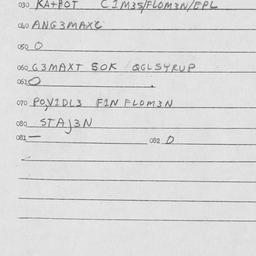 030 KA+POT CIM3S/FLOM3N/EPL
040 ANG3MAXE
050 O
060 G3MAXT SOK QGLSYRUP
061 O
070 POVIDL3 FIN FLOM3N
080 STAJ3N
081 — 082 D